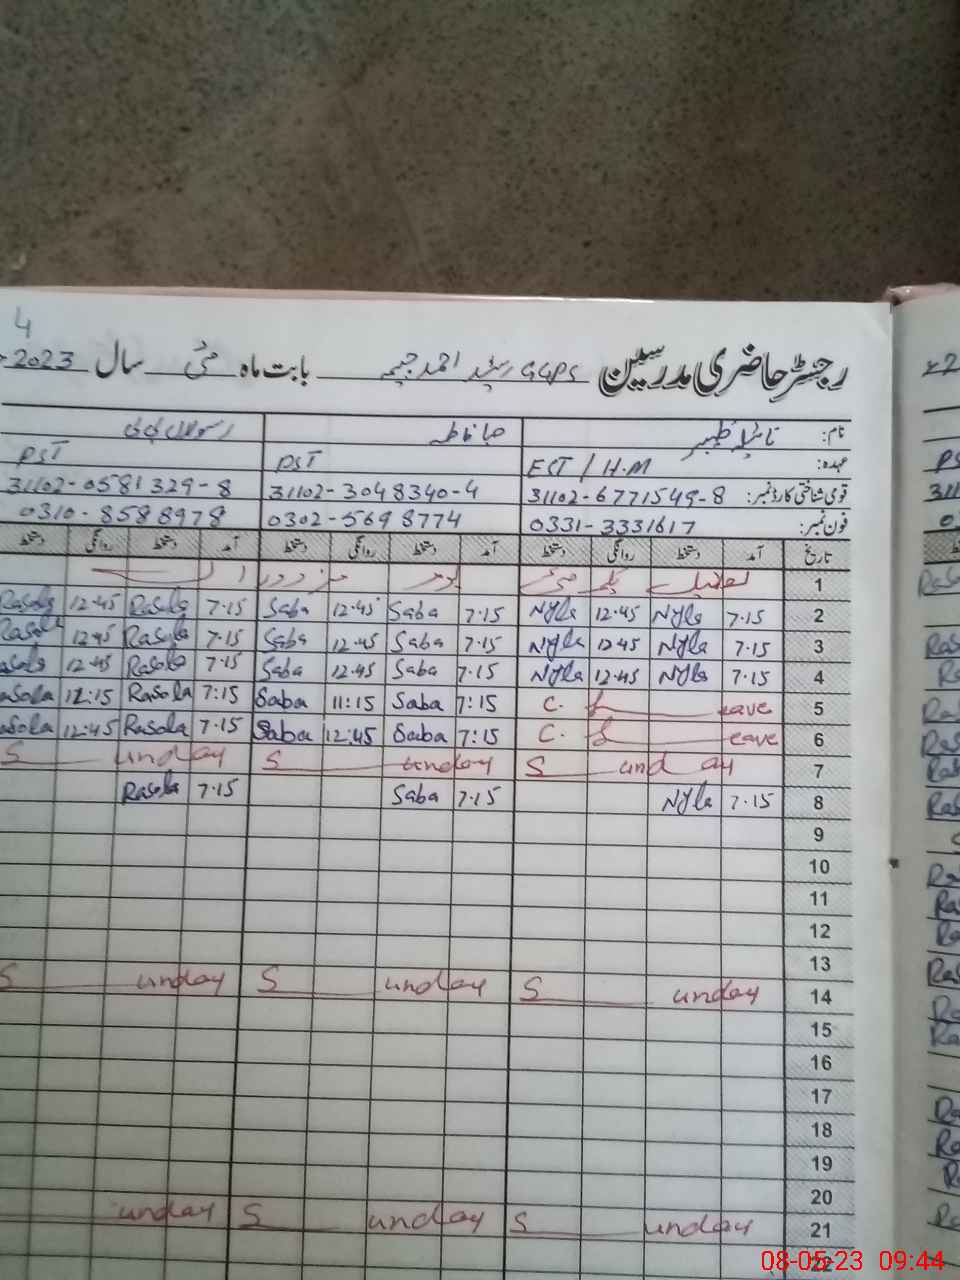 4
رجسٹر حاضری مدرسین GGPS رشید احمد چیمہ بابت ماہ مئی سال 2023
نام: نائیلہ ظہیر صبا فاطمہ رسولاں بی بی
عہدہ: EST / H.M PST PST
قومی شناختی کارڈ نمبر: 31102-6771549-8 31102-3048340-4 31102-0581329-8
فون نمبر: 0331-3331617 0302-5698774 0310-8588978
تاریخ آمد دستخط روانگی دستخط آمد دستخط روانگی دستخط آمد دستخط روانگی دستخط
1 تعطیل یکم مئی یوم مزدوراں
2 7.15 Nyla 12.45 Nyla 7.15 Saba 12.45 Saba 7.15 Rasola 12.45 Rasola
3 7.15 Nyla 12.45 Nyla 7.15 Saba 12.45 Saba 7.15 Rasola 12.45 Rasola
4 7.15 Nyla 12.45 Nyla 7.15 Saba 12.45 Saba 7.15 Rasola 12.45 asola
5 C. Leave 7:15 Saba 11:15 Saba 7:15 Rasola 12:15 asola
6 C. Leave 7:15 Saba 12:45 Saba 7.15 Rasola 12:45 asola
7 Sunday Sunday Sunday
8 7.15 Nyla 7.15 Saba 7.15 Rasola
9
10
11
12
13
14 Sunday Sunday Sunday
15
16
17
18
19
20
21 Sunday Sunday unday
22
08-05-23 09:44